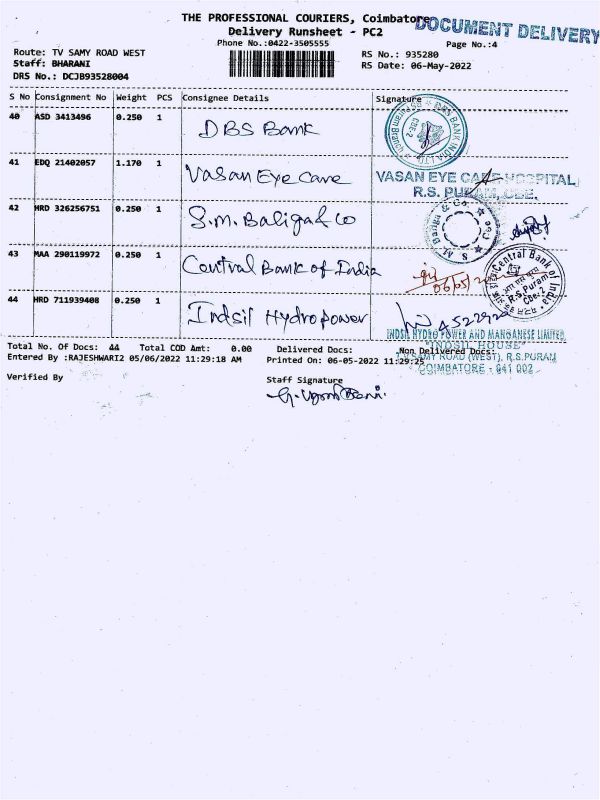 THE PROFESSIONAL COURIERS, Coimbatore
DOCUMENT DELIVERY
Delivery Runsheet - PC2
Phone No.:0422-3505555
Page No.:4
Route: TV SAMY ROAD WEST
RS No.: 935280
Staff: BHARANI
RS Date: 06-May-2022
DRS No.: DCJB93528004
S No Consignment No Weight PCS Consignee Details Signature
40 ASD 3413496 0.250 1 DBS Bank
DBS BANK INDIA LTD
CBE-2
41 EDQ 21402057 1.170 1 Vasan Eye Care
VASAN EYE CARE HOSPITAL
R.S. PURAM, CBE.
42 HRD 326256751 0.250 1 S.m. Baliga & Co
43 MAA 290119972 0.250 1 Central Bank of India
Central Bank of India
R.S.Puram
CBE-2
44 HRD 711939408 0.250 1 Indsil Hydropower
INDSIL HYDRO POWER AND MANGANESE LIMITED
"INDSIL HOUSE"
T.V.SAMY ROAD (WEST), R.S.PURAM
COIMBATORE - 641 002
Total No. Of Docs: 44 Total COD Amt: 0.00 Delivered Docs: Non Delivered Docs:
Entered By :RAJESHWARI2 05/06/2022 11:29:18 AM Printed On: 06-05-2022 11:29:25
Verified By
Staff Signature